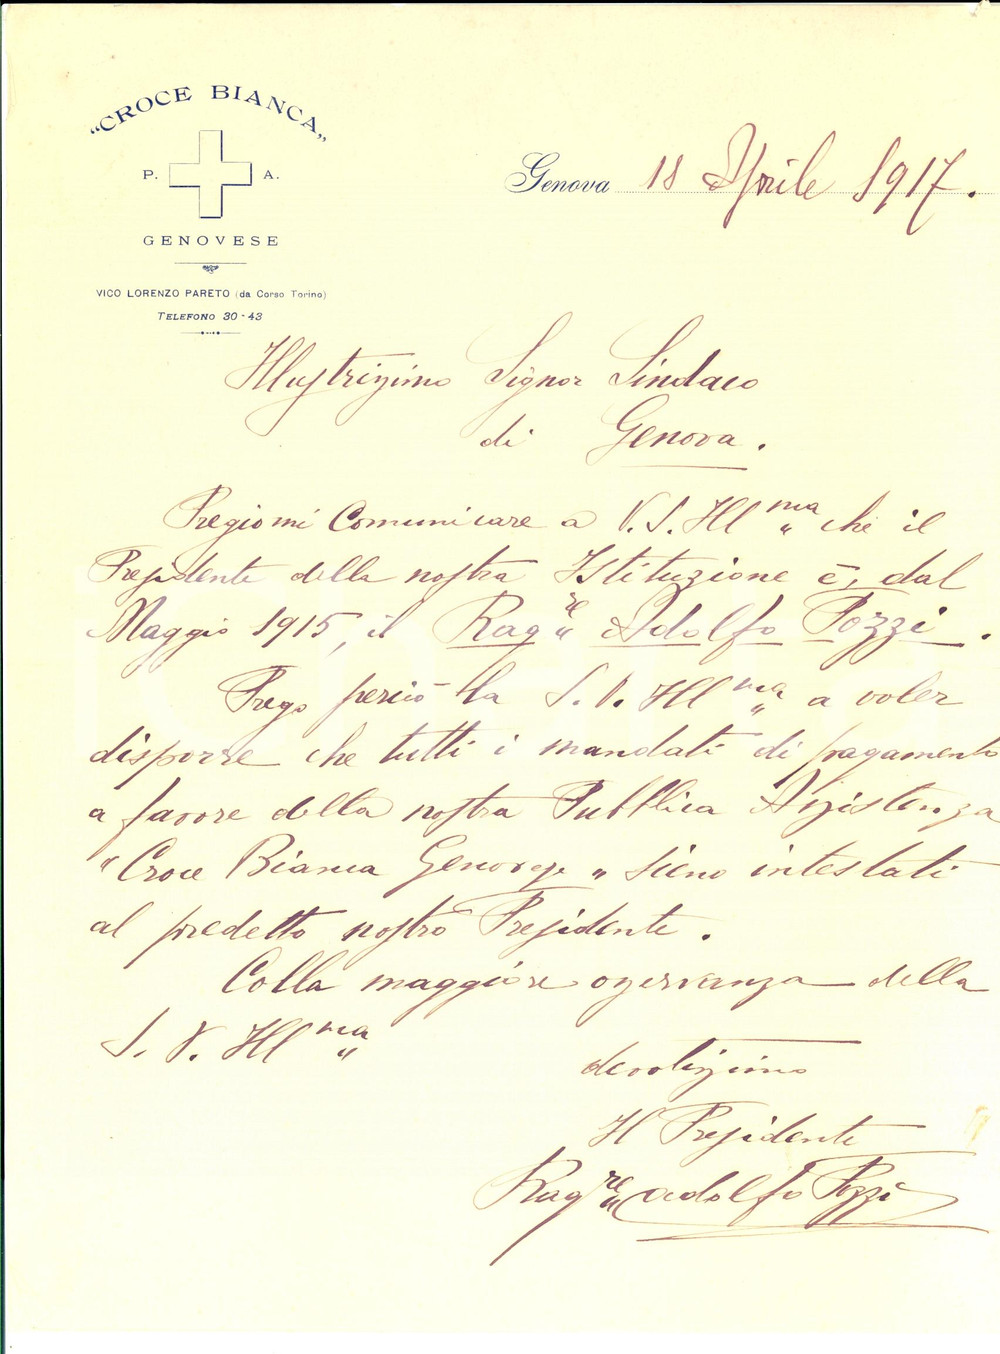 "CROCE BIANCA"
P. A.
GENOVESE
VICO LORENZO PARETO (da Corso Torino)
TELEFONO 30-43
Genova 18 Aprile 1917.
Illustrissimo Signor Sindaco
di Genova.
Pregiomi Comunicare a V. S. Ill ma che il
Presidente della nostra Istituzione è, dal
Maggio 1915, il Rag re Adolfo Pozzi.
Prego perciò la S. V. Ill ma a voler
disporre che tutti i mandati di pagamento
a favore della nostra Pubblica Assistenza
"Croce Bianca Genovese" sieno intestati
al predetto nostro Presidente.
Colla maggiore osservanza della
S. V. Ill ma
devotissimo
Il Presidente
Rag re Adolfo Pozzi